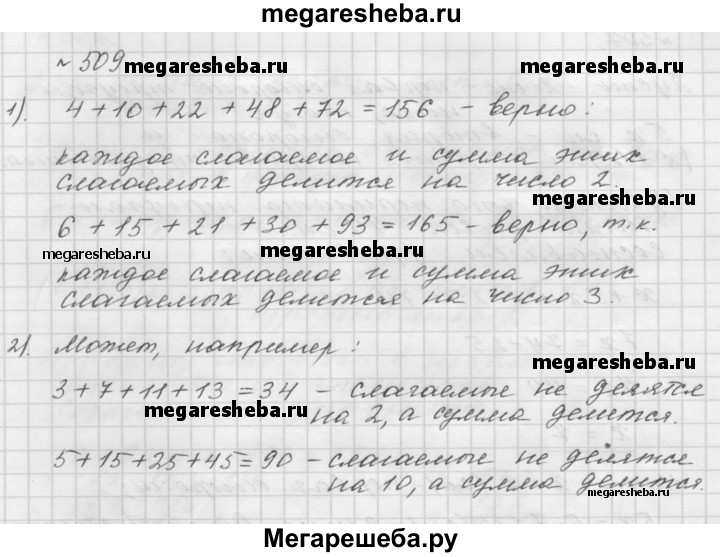 megaresheba.ru
№ 509
megaresheba.ru
megaresheba.ru
1). 4 + 10 + 22 + 48 + 72 = 156 - верно:
каждое слагаемое и сумма этих
слагаемых делится на число 2.
6 + 15 + 21 + 30 + 93 = 165 - верно, т.к.
megaresheba.ru
megaresheba.ru
каждое слагаемое и сумма этих
слагаемых делится на число 3.
2). Может, например:
megaresheba.ru
3 + 7 + 11 + 13 = 34 - слагаемые не делятся
megaresheba.ru
на 2, а сумма делится.
5 + 15 + 25 + 45 = 90 - слагаемые не делятся
на 10, а сумма делится.
megaresheba.ru
Мегарешеба.ру